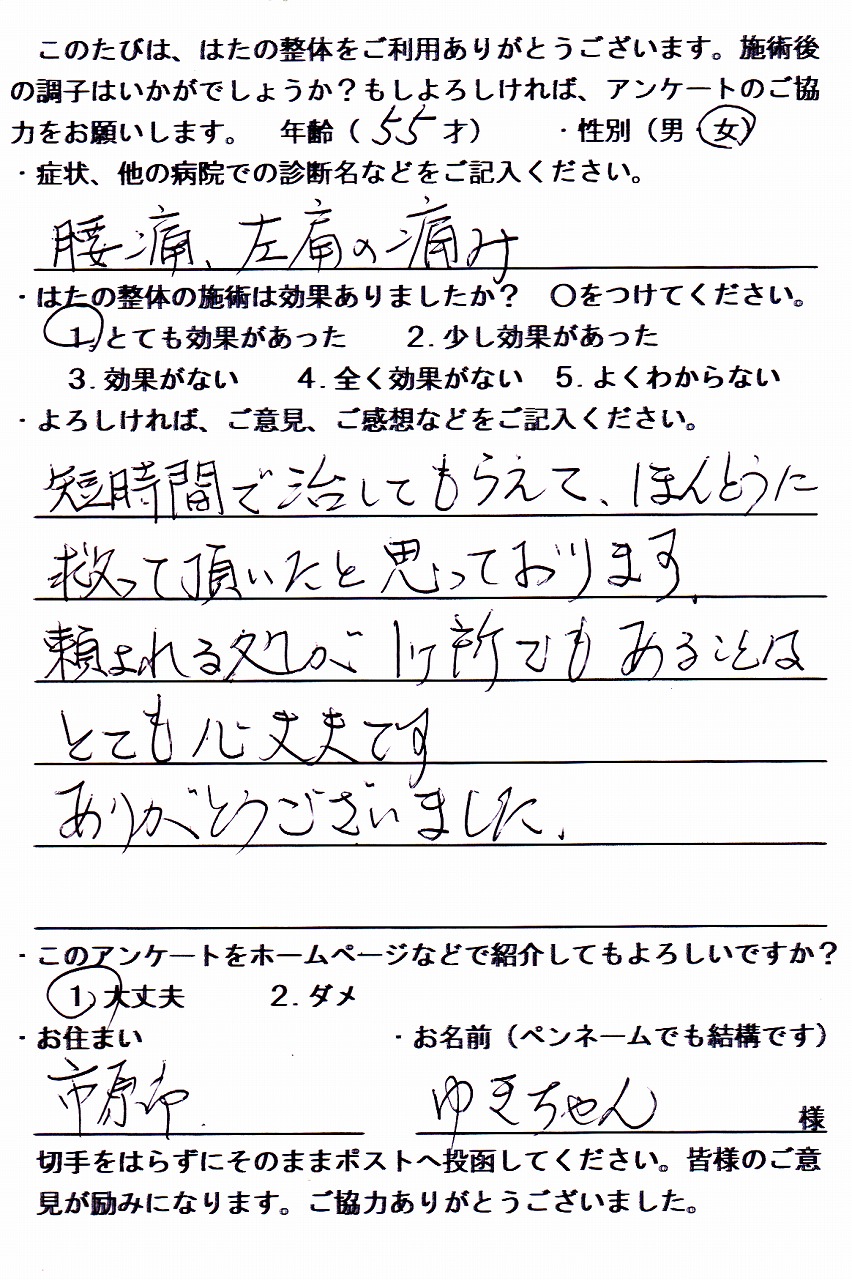 このたびは、はたの整体をご利用ありがとうございます。施術後
の調子はいかがでしょうか？もしよろしければ、アンケートのご協
力をお願いします。　年齢（ 55 才）　　・性別（男・女）
・症状、他の病院での診断名などをご記入ください。
腰痛、左肩の痛み
・はたの整体の施術は効果ありましたか？　〇をつけてください。
1. とても効果があった　　2. 少し効果があった
3. 効果がない　　4. 全く効果がない　5. よくわからない
・よろしければ、ご意見、ご感想などをご記入ください。
短時間で治してもらえて、ほんとうに
救って頂いたと思っております。
頼まれる処が1ヶ所でもあることは
とても心丈夫です
ありがとうございました。
・このアンケートをホームページなどで紹介してもよろしいですか？
1. 大丈夫　　　2. ダメ
・お住まい　　　　　　　・お名前（ペンネームでも結構です）
市原市　　　　　　　ゆきちゃん　　　　　様
切手をはらずにそのままポストへ投函してください。皆様のご意
見が励みになります。ご協力ありがとうございました。